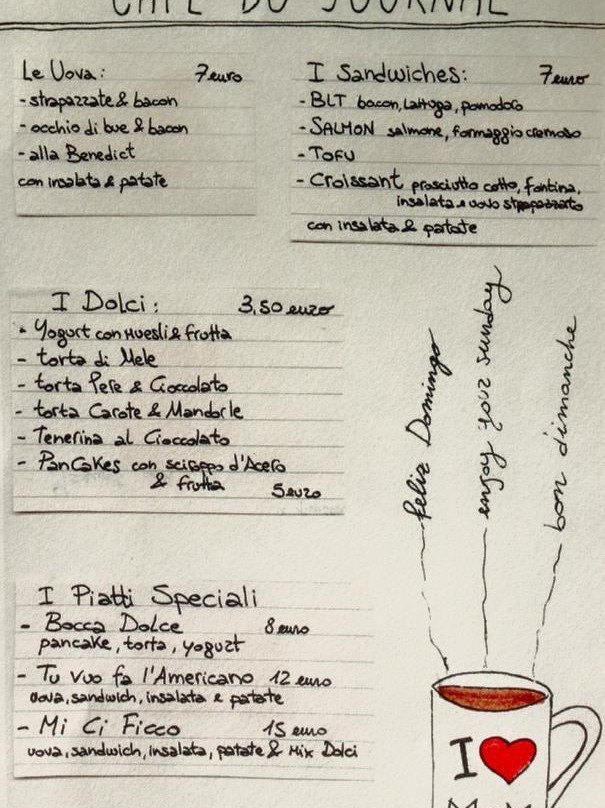 CAFE DU JOURNAL
Le Uova: 7 euro
- strapazzate & bacon
- occhio di bue & bacon
- alla Benedict
con insalata & patate
I Sandwiches: 7 euro
- BLT bacon, lattuga, pomodoro
- SALMON salmone, formaggio cremoso
- TOFU
- Croissant prosciutto cotto, fontina,
insalata e uovo strapazzato
con insalata & patate
I Dolci: 3,50 euro
- Yogurt con muesli & frutta
- torta di Mele
- torta Pere & Cioccolato
- torta Carote & Mandorle
- Tenerina al Cioccolato
- PanCakes con sciroppo d'Acero
& frutta 5 euro
feliz Domingo
enjoy your sunday
bon dimanche
I Piatti Speciali
- Bocca Dolce 8 euro
pancake, torta, yogurt
- Tu vuo fa l'Americano 12 euro
uova, sandwich, insalata e patate
- Mi Ci Ficco 15 euro
uova, sandwich, insalata, patate & Mix Dolci
I ♥